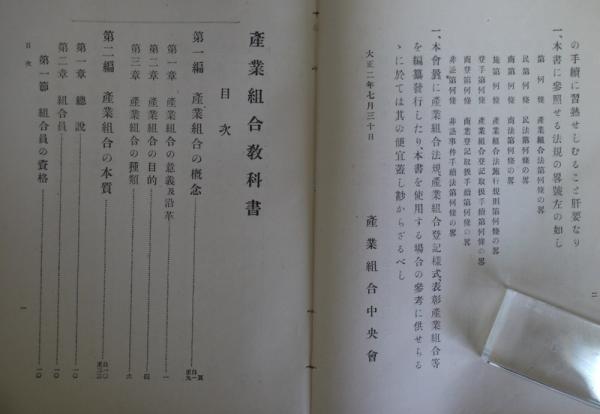 の手續に習熟せしむること肝要なり
一、本書に參照せる法規の畧號左の如し
第何條 產業組合法第何條の畧
民第何條 民法第何條の畧
商第何條 商法第何條の畧
施第何條 產業組合法施行規則第何條の畧
登手第何條 產業組合登記取扱手續第何條の畧
商登第何條 商業登記取扱手續第何條の畧
非訟第何條 非訟事件手續法第何條の畧
一、本會曩に產業組合法規、產業組合登記樣式、表彰產業組合等
を編纂發行したり、本書を使用する場合の參考に供せらる
ゝに於ては其の便宜蓋し尠からざるべし
大正二年七月三十日
產業組合中央會
二
產業組合敎科書
目次
第一編 產業組合の槪念
第一章 產業組合の意義及沿革 一
第二章 產業組合の目的 四
第三章 產業組合の種類 六
第二編 產業組合の本質
第一章 總說 一〇
第二章 組合員 一〇
第一節 組合員の資格 一〇
目次
一